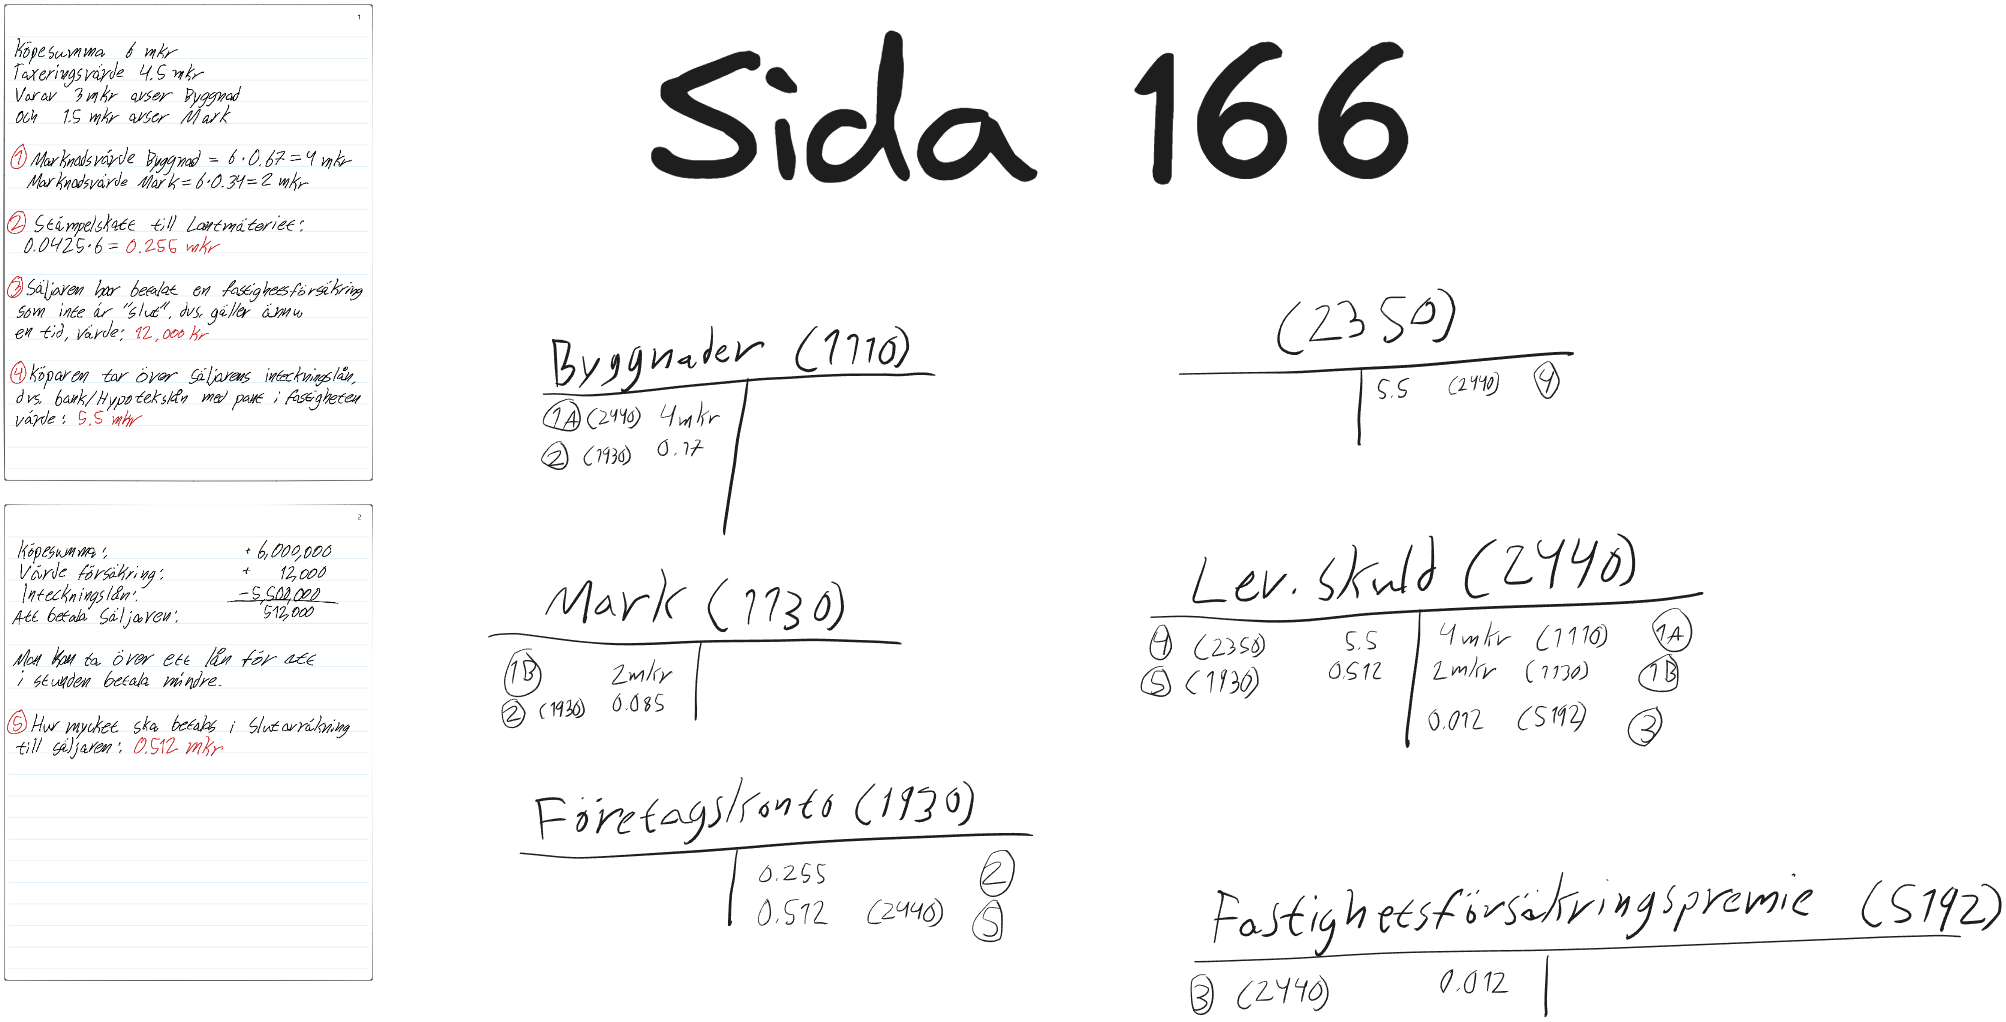 1
Köpesumma 6 mkr
Taxeringsvärde 4.5 mkr
Varav 3 mkr avser Byggnad
och 1.5 mkr avser Mark
① Marknadsvärde Byggnad = 6 · 0.67 = 4 mkr
Marknadsvärde Mark = 6 · 0.34 = 2 mkr
② Stämpelskatt till Lantmäteriet:
0.0425 · 6 = 0.255 mkr
③ Säljaren har betalat en fastighetsförsäkring
som inte är "slut", dvs. gäller ännu
en tid, värde: 12,000 kr
④ Köparen tar över säljarens inteckningslån,
dvs. bank/Hypotekslån med pant i fastigheten
värde: 5.5 mkr
2
Köpesumma: + 6,000,000
Värde försäkring: + 12,000
Inteckningslån: - 5,500,000
Att betala Säljaren: 512,000
Man kan ta över ett lån för att
i stunden betala mindre.
⑤ Hur mycket ska betalas i slutavräkning
till säljaren: 0.512 mkr
Sida 166
Byggnader (1110)
1A (2440) 4 mkr
② (1930) 0.17
Mark (1130)
1B 2 mkr
② (1930) 0.085
Företagskonto (1930)
0.255 ②
0.512 (2440) ⑤
(2350)
5.5 (2440) ④
Lev. skuld (2440)
④ (2350) 5.5 4 mkr (1110) 1A
⑤ (1930) 0.512 2 mkr (1130) 1B
0.012 (5192) ③
Fastighetsförsäkringspremie (5192)
③ (2440) 0.012